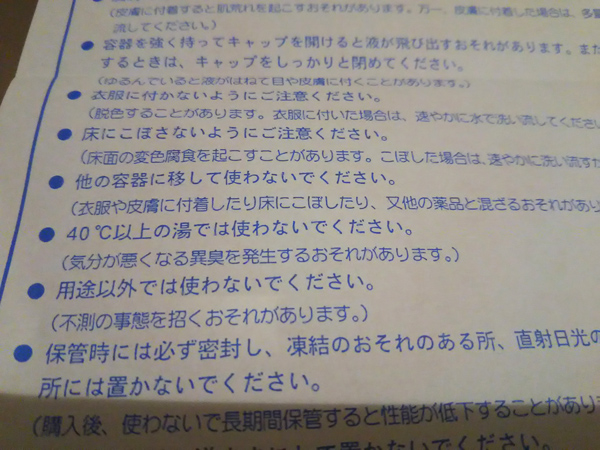 (皮膚に付着すると肌荒れを起こすおそれがあります。万一、皮膚に付着した場合は、多量
流してください。)
● 容器を強く持ってキャップを開けると液が飛び出すおそれがあります。また
するときは、キャップをしっかりと閉めてください。
(ゆるんでいると液がはねて目や皮膚に付くことがあります。)
● 衣服に付かないようにご注意ください。
(脱色することがあります。衣服に付いた場合は、速やかに水で洗い流してください
● 床にこぼさないようにご注意ください。
(床面の変色腐食を起こすことがあります。こぼした場合は、速やかに洗い流すか
● 他の容器に移して使わないでください。
(衣服や皮膚に付着したり床にこぼしたり、又他の薬品と混ざるおそれがあり
● 40℃以上の湯では使わないでください。
(気分が悪くなる異臭を発生するおそれがあります。)
● 用途以外では使わないでください。
(不測の事態を招くおそれがあります。)
● 保管時には必ず密封し、凍結のおそれのある所、直射日光の
所には置かないでください。
(購入後、使わないで長期間保管すると性能が低下することがあり
して置かないでください。